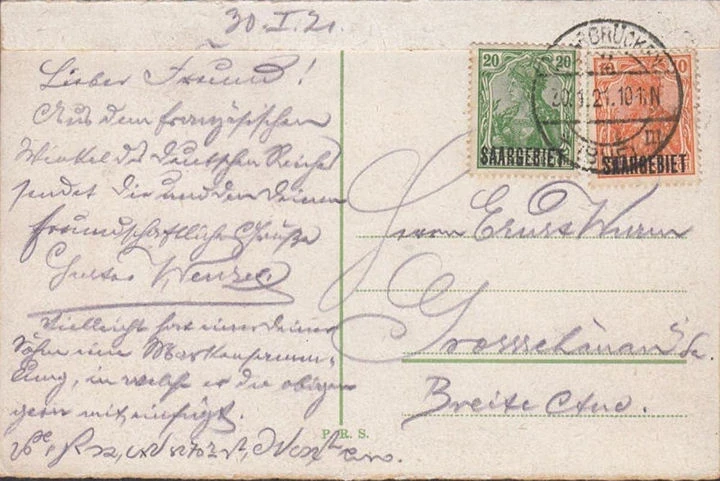 30.I.21.
Lieber Freund!
Aus dem französischen
Winkel des deutschen Reiches
sendet dir und den deinen
freundschaftliche Grüße
Gustav Wenzel
Vielleicht hat einer deiner
Söhne eine Markensamm-
lung, in welche er die obigen
gern mit einfügt.
P. R. S.
20 20
SAARGEBIET
10
SAARGEBIET
SAARBRÜCKEN
30.1.21.10-11.N
Herrn Ernst Wurm
Grossschönau i/Sa.
Breite Aue.